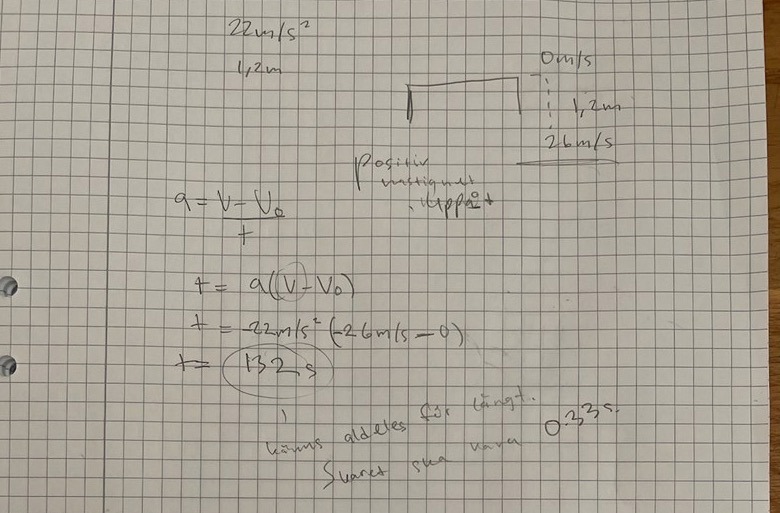 22m/s²
1,2m
0m/s
1,2m
26m/s
Positiv
hastighet
uppåt
a = V - V₀
t
t = a(V - V₀)
t = -22m/s² (-26m/s - 0)
t = 132 s
känns aldeles för långt.
Svaret ska vara 0.33s.